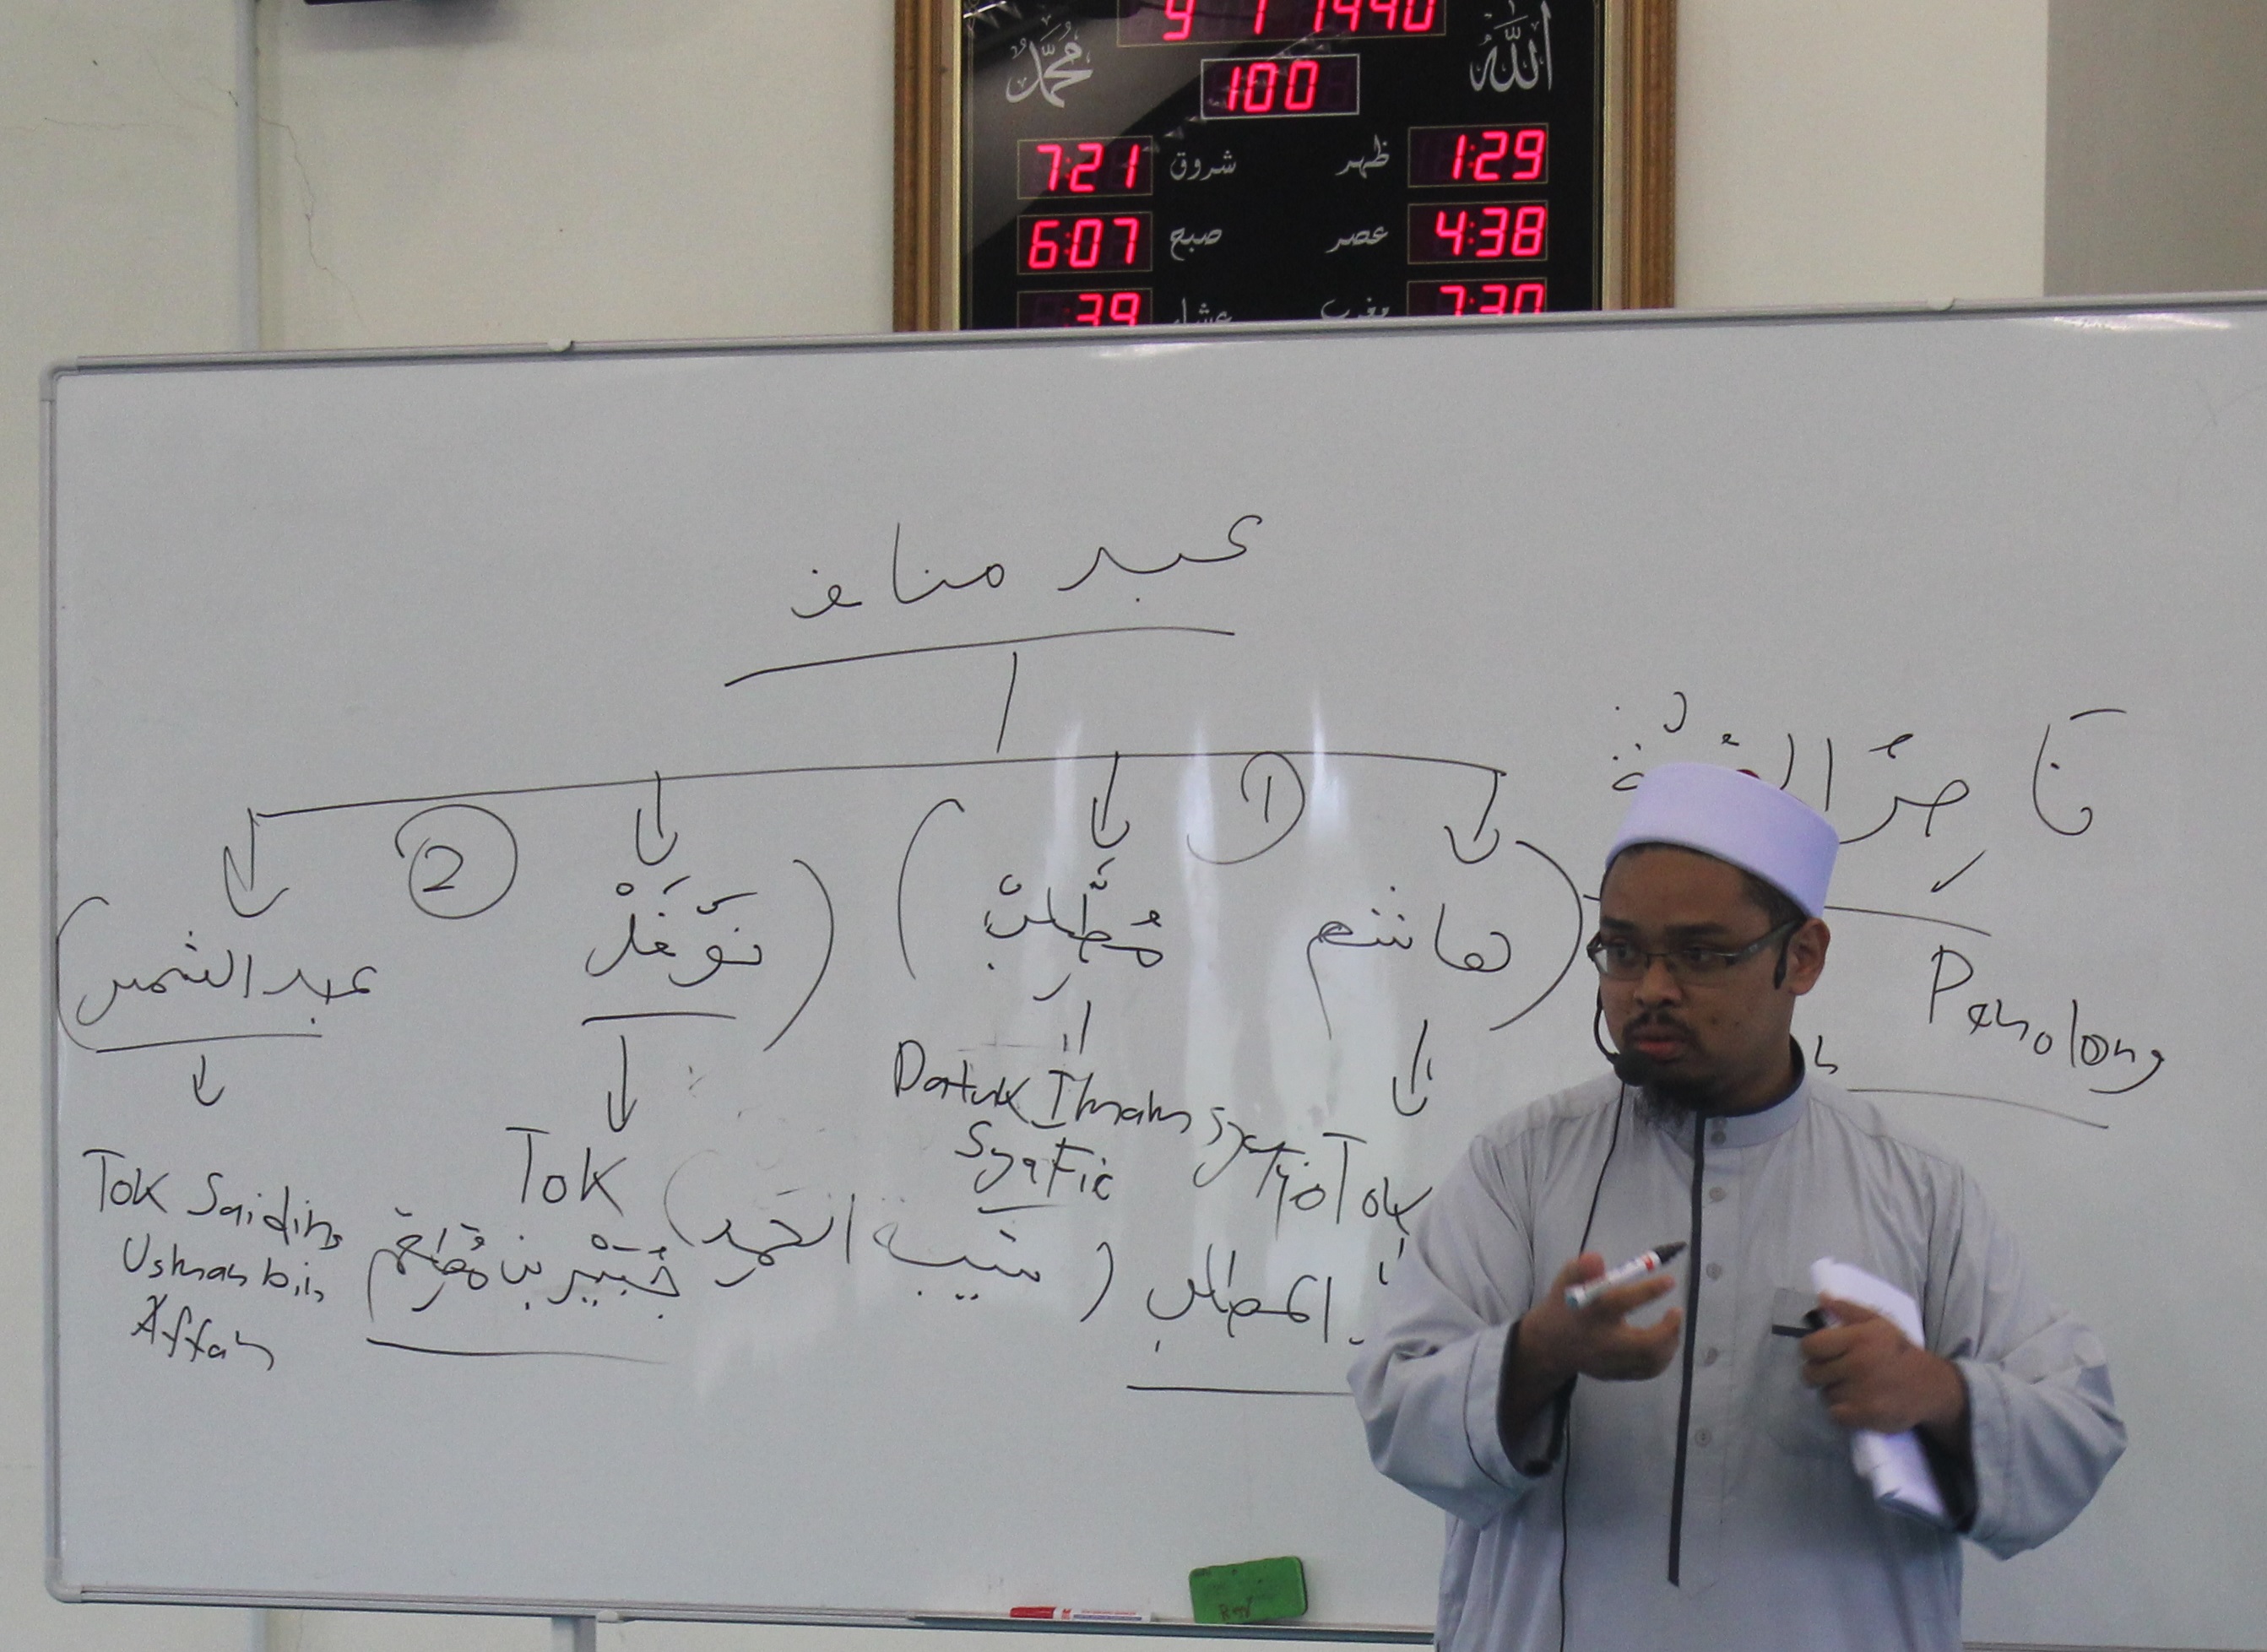 9 1 1440
محمد
الله
100
7:21 شروق ظهر 1:29
6:07 صبح عصر 4:38
:39 عشاء مغرب 7:30
عبد مناف
نَاصِرُ
Penolong
1
2
هاشم
مُطَّلِبْ
نَوْفَلْ
عبد الشمس
Datuk Imam
Syafie
Tok
المطلب (شيبة الحمد)
Tok
جُبَيْر بن مُطْعِم
Tok Saidina
Usman bin
Affan